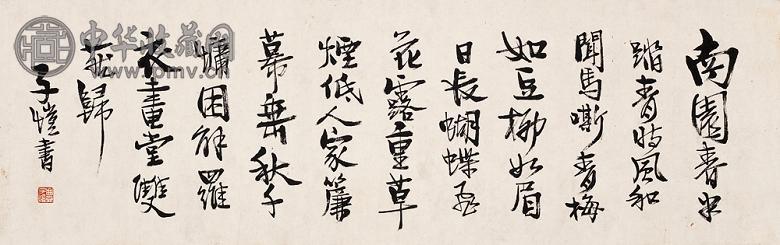 南園春半
踏青時風和
聞馬嘶青梅
如豆柳如眉
日長蝴蝶飛
花露重草
煙低人家簾
幕垂秋千
慵困解羅
衣畫堂雙
燕歸
子愷書
中华收藏网
www.pmv.cn